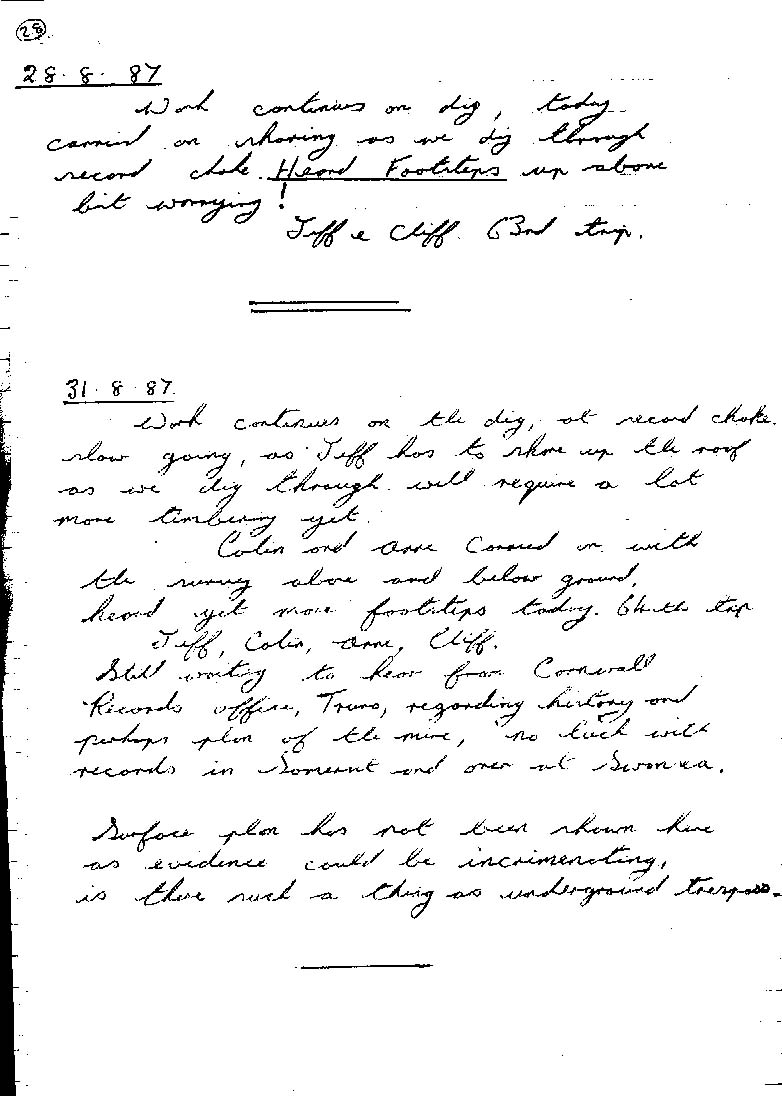 28
28.8.87
Work continues on dig, today
carried on shoring as we dig through
record choke. Heard Footsteps up above
bit worrying!
Jeff & Cliff. 63rd trip.
31.8.87.
Work continues on the dig, at record choke.
slow going, as Jeff has to shore up the roof
as we dig through. will require a lot
more timbering yet.
Colin and Anne carried on with
the survey above and below ground,
heard yet more footsteps today. trip
Jeff, Colin, Anne, Cliff.
Still waiting to hear from Cornwall
Records office, Truro, regarding history and
perhaps plan of the mine, no luck with
records in Somerset and over at Swansea.
Surface plan has not been shown here
as evidence could be incrimenating,
is there such a thing as underground trespass.